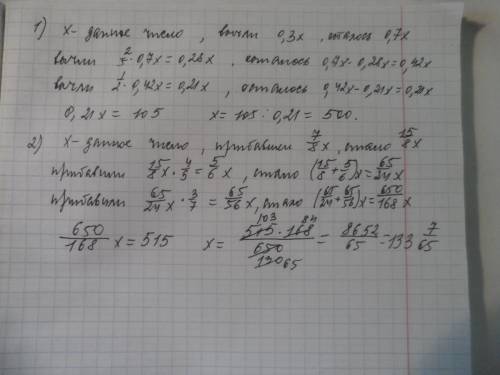 1) x - данное число, вычли 0,3x, осталось 0,7x
вычли 2/5 · 0,7x = 0,28x, осталось 0,7x - 0,28x = 0,42x
вычли 1/2 · 0,42x = 0,21x, осталось 0,42x - 0,21x = 0,21x
0,21x = 105 x = 105 : 0,21 = 500.
2) x - данное число, прибавили 7/8 x, стало 15/8 x
прибавили 15/8 x · 4/5 = 5/6 x, стало (15/8 + 5/6)x = 65/24 x
прибавили 65/24 x · 3/7 = 65/56 x, стало (65/24 + 65/56)x = 650/168 x
650/168 x = 515 x = 515 · 168 / 650 = 8652/65 = 133 7/65
103 84
130 65